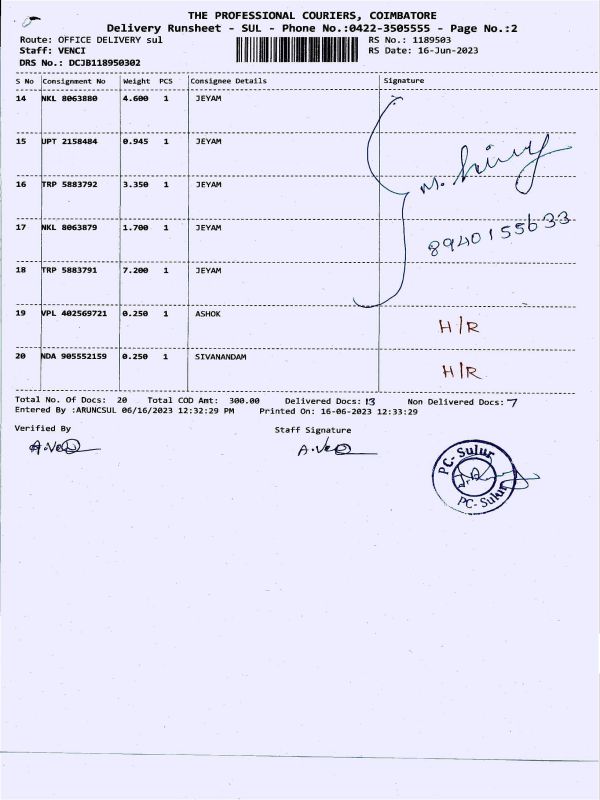 THE PROFESSIONAL COURIERS, COIMBATORE
Delivery Runsheet - SUL - Phone No.:0422-3505555 - Page No.:2
Route: OFFICE DELIVERY sul RS No.: 1189503
Staff: VENCI RS Date: 16-Jun-2023
DRS No.: DCJB118950302
S No Consignment No Weight PCS Consignee Details Signature
14 NKL 8063880 4.600 1 JEYAM
15 UPT 2158484 0.945 1 JEYAM
16 TRP 5883792 3.350 1 JEYAM
17 NKL 8063879 1.700 1 JEYAM
8940155633
18 TRP 5883791 7.200 1 JEYAM
19 VPL 402569721 0.250 1 ASHOK H/R
20 NDA 905552159 0.250 1 SIVANANDAM H/R
Total No. Of Docs: 20 Total COD Amt: 300.00 Delivered Docs: 13 Non Delivered Docs: 7
Entered By :ARUNCSUL 06/16/2023 12:32:29 PM Printed On: 16-06-2023 12:33:29
Verified By Staff Signature
PC-Sulur
PC-Sulur